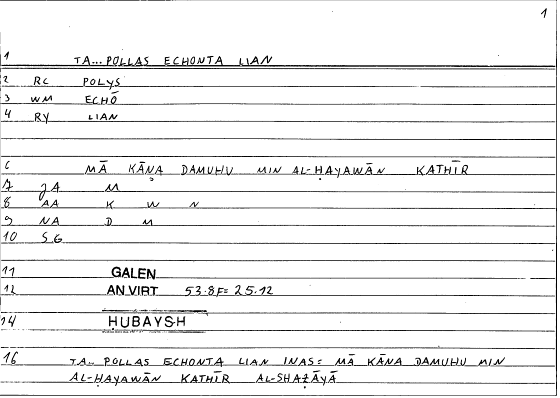 1
1 TA...POLLAS ECHONTA LIAN
2 RC POLYS
3 WM ECHŌ
4 RY LIAN
6 MĀ KĀNA DAMUHU MIN AL-ḤAYAWĀN KATHĪR
7 JA M
8 AA K W N
9 NA D M
10 SG
11 GALEN
12 AN.VIRT 53.8F=25.12
14 HUBAYSH
16 TA.. POLLAS ECHONTA LIAN INAS= MĀ KĀNA DAMUHU MIN
AL-ḤAYAWĀN KATHĪR AL-SHAẒĀYĀ